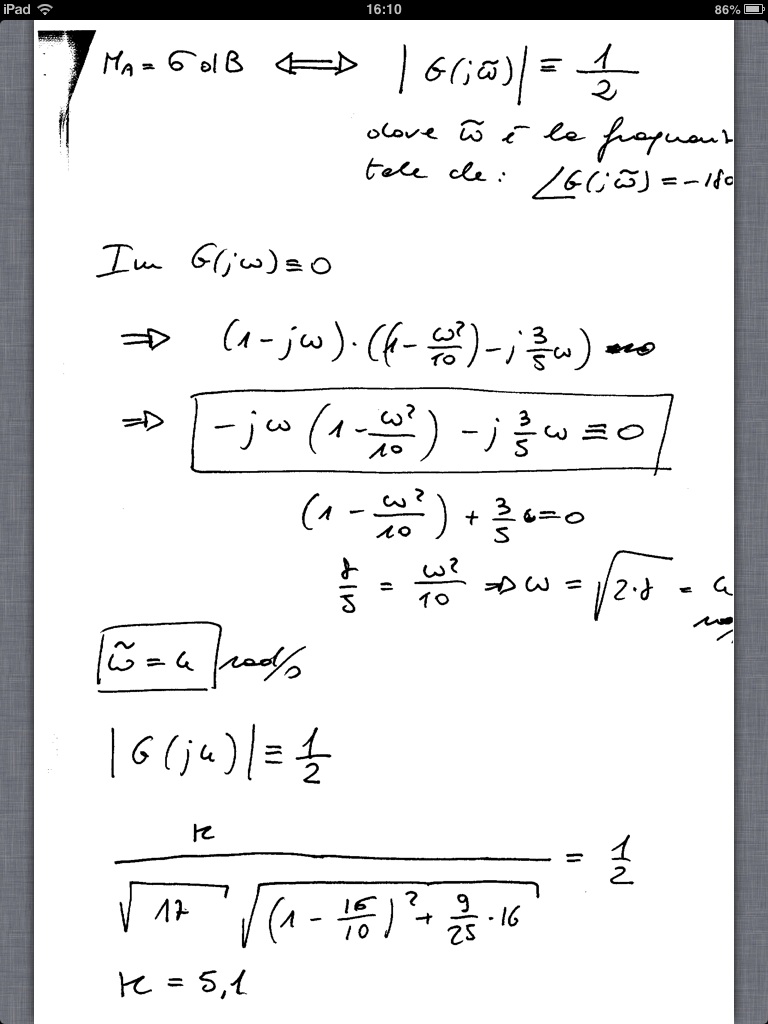 iPad 16:10 86%
M_A = 6 dB ⟺ |G(jω̃)| ≡ 1/2
dove ω̃ è la frequen
tale che: ∠G(jω̃) = -180
Im G(jω) ≡ 0
⇒ (1 - jω) · ((1 - ω²/10) - j 3/5 ω)
⇒ -jω (1 - ω²/10) - j 3/5 ω ≡ 0
(1 - ω²/10) + 3/5 = 0
8/5 = ω²/10 ⇒ ω = √(2·8) = 4
ω̃ = 4 rad/s
|G(j4)| ≡ 1/2
K / (√17 √((1 - 16/10)² + 9/25 · 16)) = 1/2
K = 5,1